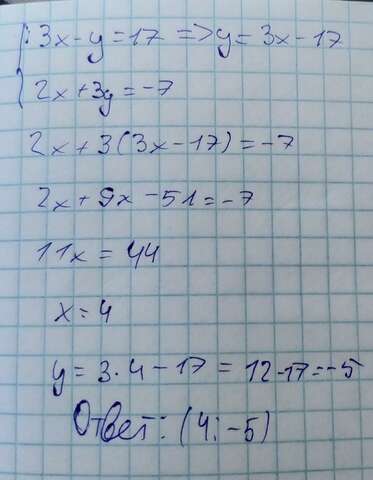 3x - y = 17 => y = 3x - 17
2x + 3y = -7
2x + 3(3x - 17) = -7
2x + 9x - 51 = -7
11x = 44
x = 4
y = 3 · 4 - 17 = 12 - 17 = -5
Ответ: (4; -5)